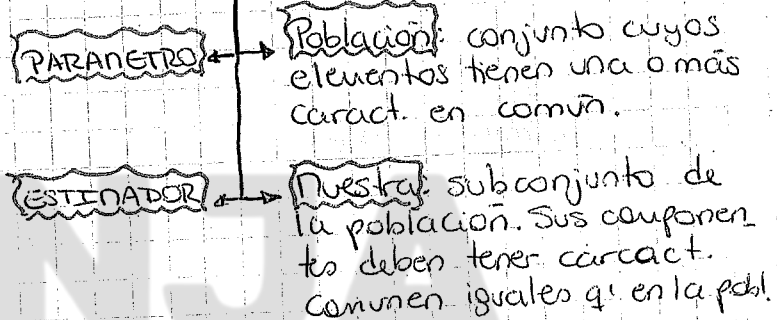 PARAMETRO
Población: conjunto cuyos
elementos tienen una o más
caract. en común.
ESTIMADOR
Muestra: subconjunto de
la población. Sus componen_
tes deben tener carcact.
comunen iguales q' en la pobl.
NJA